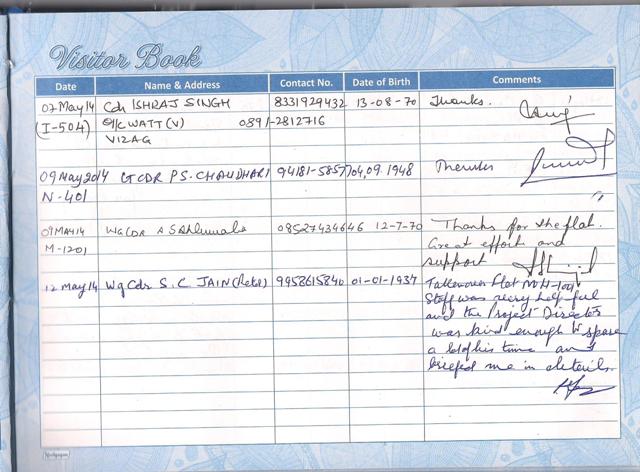 Visitor Book
Date Name & Address Contact No. Date of Birth Comments
07 May 14 Cdr ISHRAJ SINGH 8331929432 13-08-70 Thanks.
(I-504) O/C WATT (V) 0891-2812716
VIZAG
09 May 2014 LT CDR P.S. CHAUDHARI 94181-58577 04.09.1948 Thanks
N-401
09 MAY 14 WG CDR A S Ahluwalia 08527434646 12-7-70 Thanks for the flat.
M-1201 Great effort and
support
12 May 14 Wg Cdr S.C JAIN (Retd) 9958615840 01-01-1937 Taken over flat No H-1001
Staff was very helpful
and the Project Director
was kind enough to spare
a lot of his time and
briefed me in details.
Navlagagan